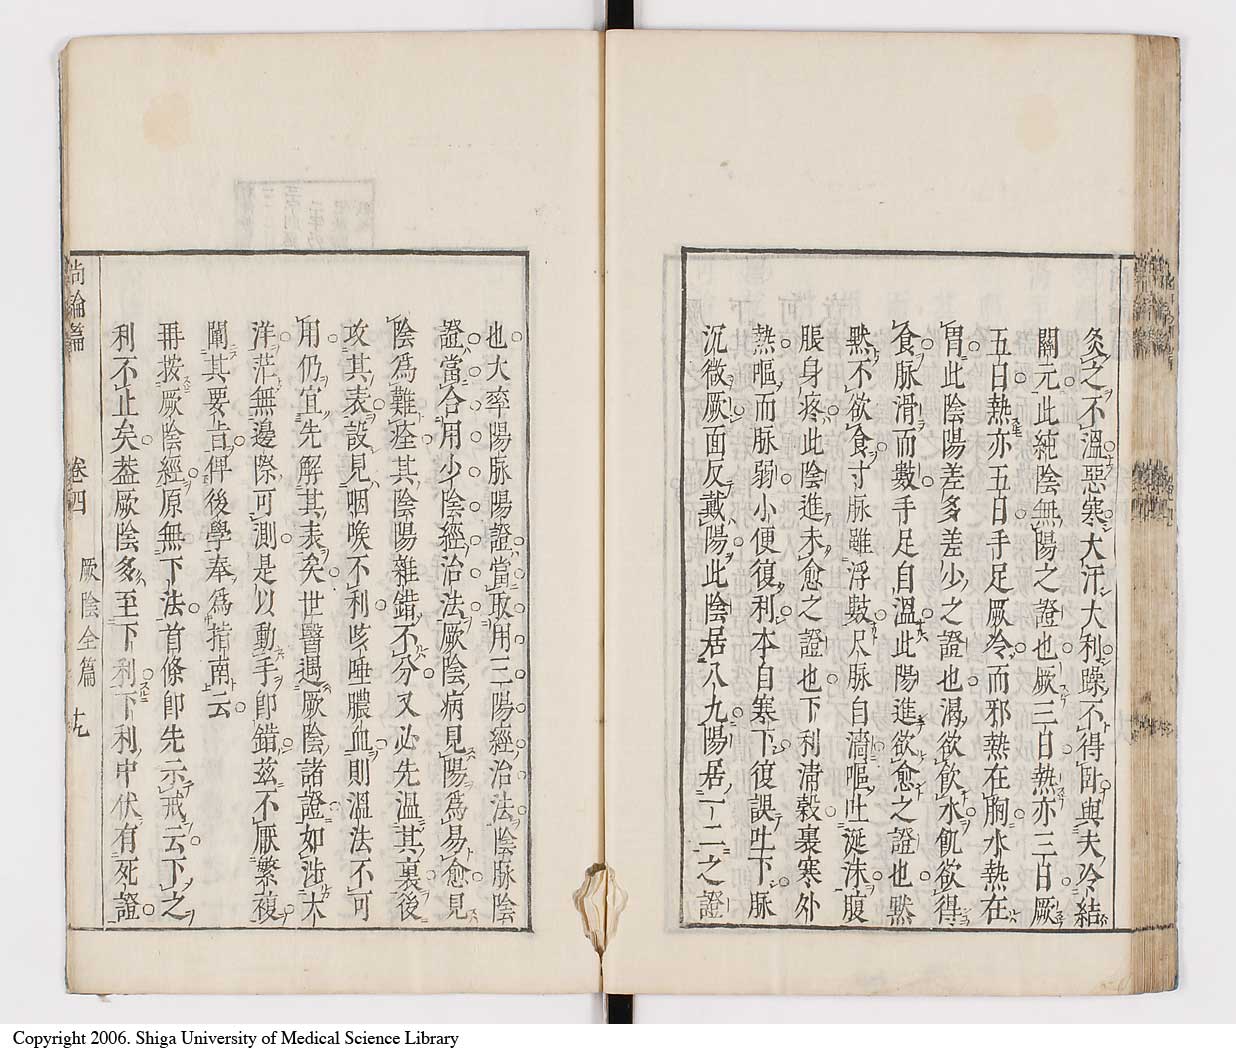 灸之不溫惡寒大汗大利躁不得臥與夫冷結
關元此純陰無陽之證也厥三日熱亦三日厥
五日熱亦五日手足厥冷而邪熱在胸水熱在
胃此陰陽差多差少之證也渴欲飮水飢欲得
食脉滑而數手足自溫此陽進欲愈之證也默
默不欲食寸脉雖浮數尺脉自濇嘔吐涎沫腹
脹身疼此陰進未愈之證也下利淸穀裏寒外
熱嘔而脉弱小便復利本自寒下復誤吐下脉
沉微厥面反戴陽此陰居八九陽居一二之證
也大率陽脉陽證當取用三陽經治法陰脉陰
證當合用少陰經治法厥陰病見陽爲易愈見
陰爲難痊其陰陽雜錯不分又必先溫其裏後
攻其表設見咽喉不利咳唾膿血則溫法不可
用仍宜先解其表矣世醫遇厥陰諸證如涉大
洋茫無邊際可測是以動手卽錯茲不厭繁複
闡其要旨俾後學奉爲指南云
再按厥陰經原無下法首條卽先示戒云下之
利不止矣葢厥陰多至下利下利中伏有死證
尚論篇 卷四 厥陰全篇 十九
Copyright 2006. Shiga University of Medical Science Library